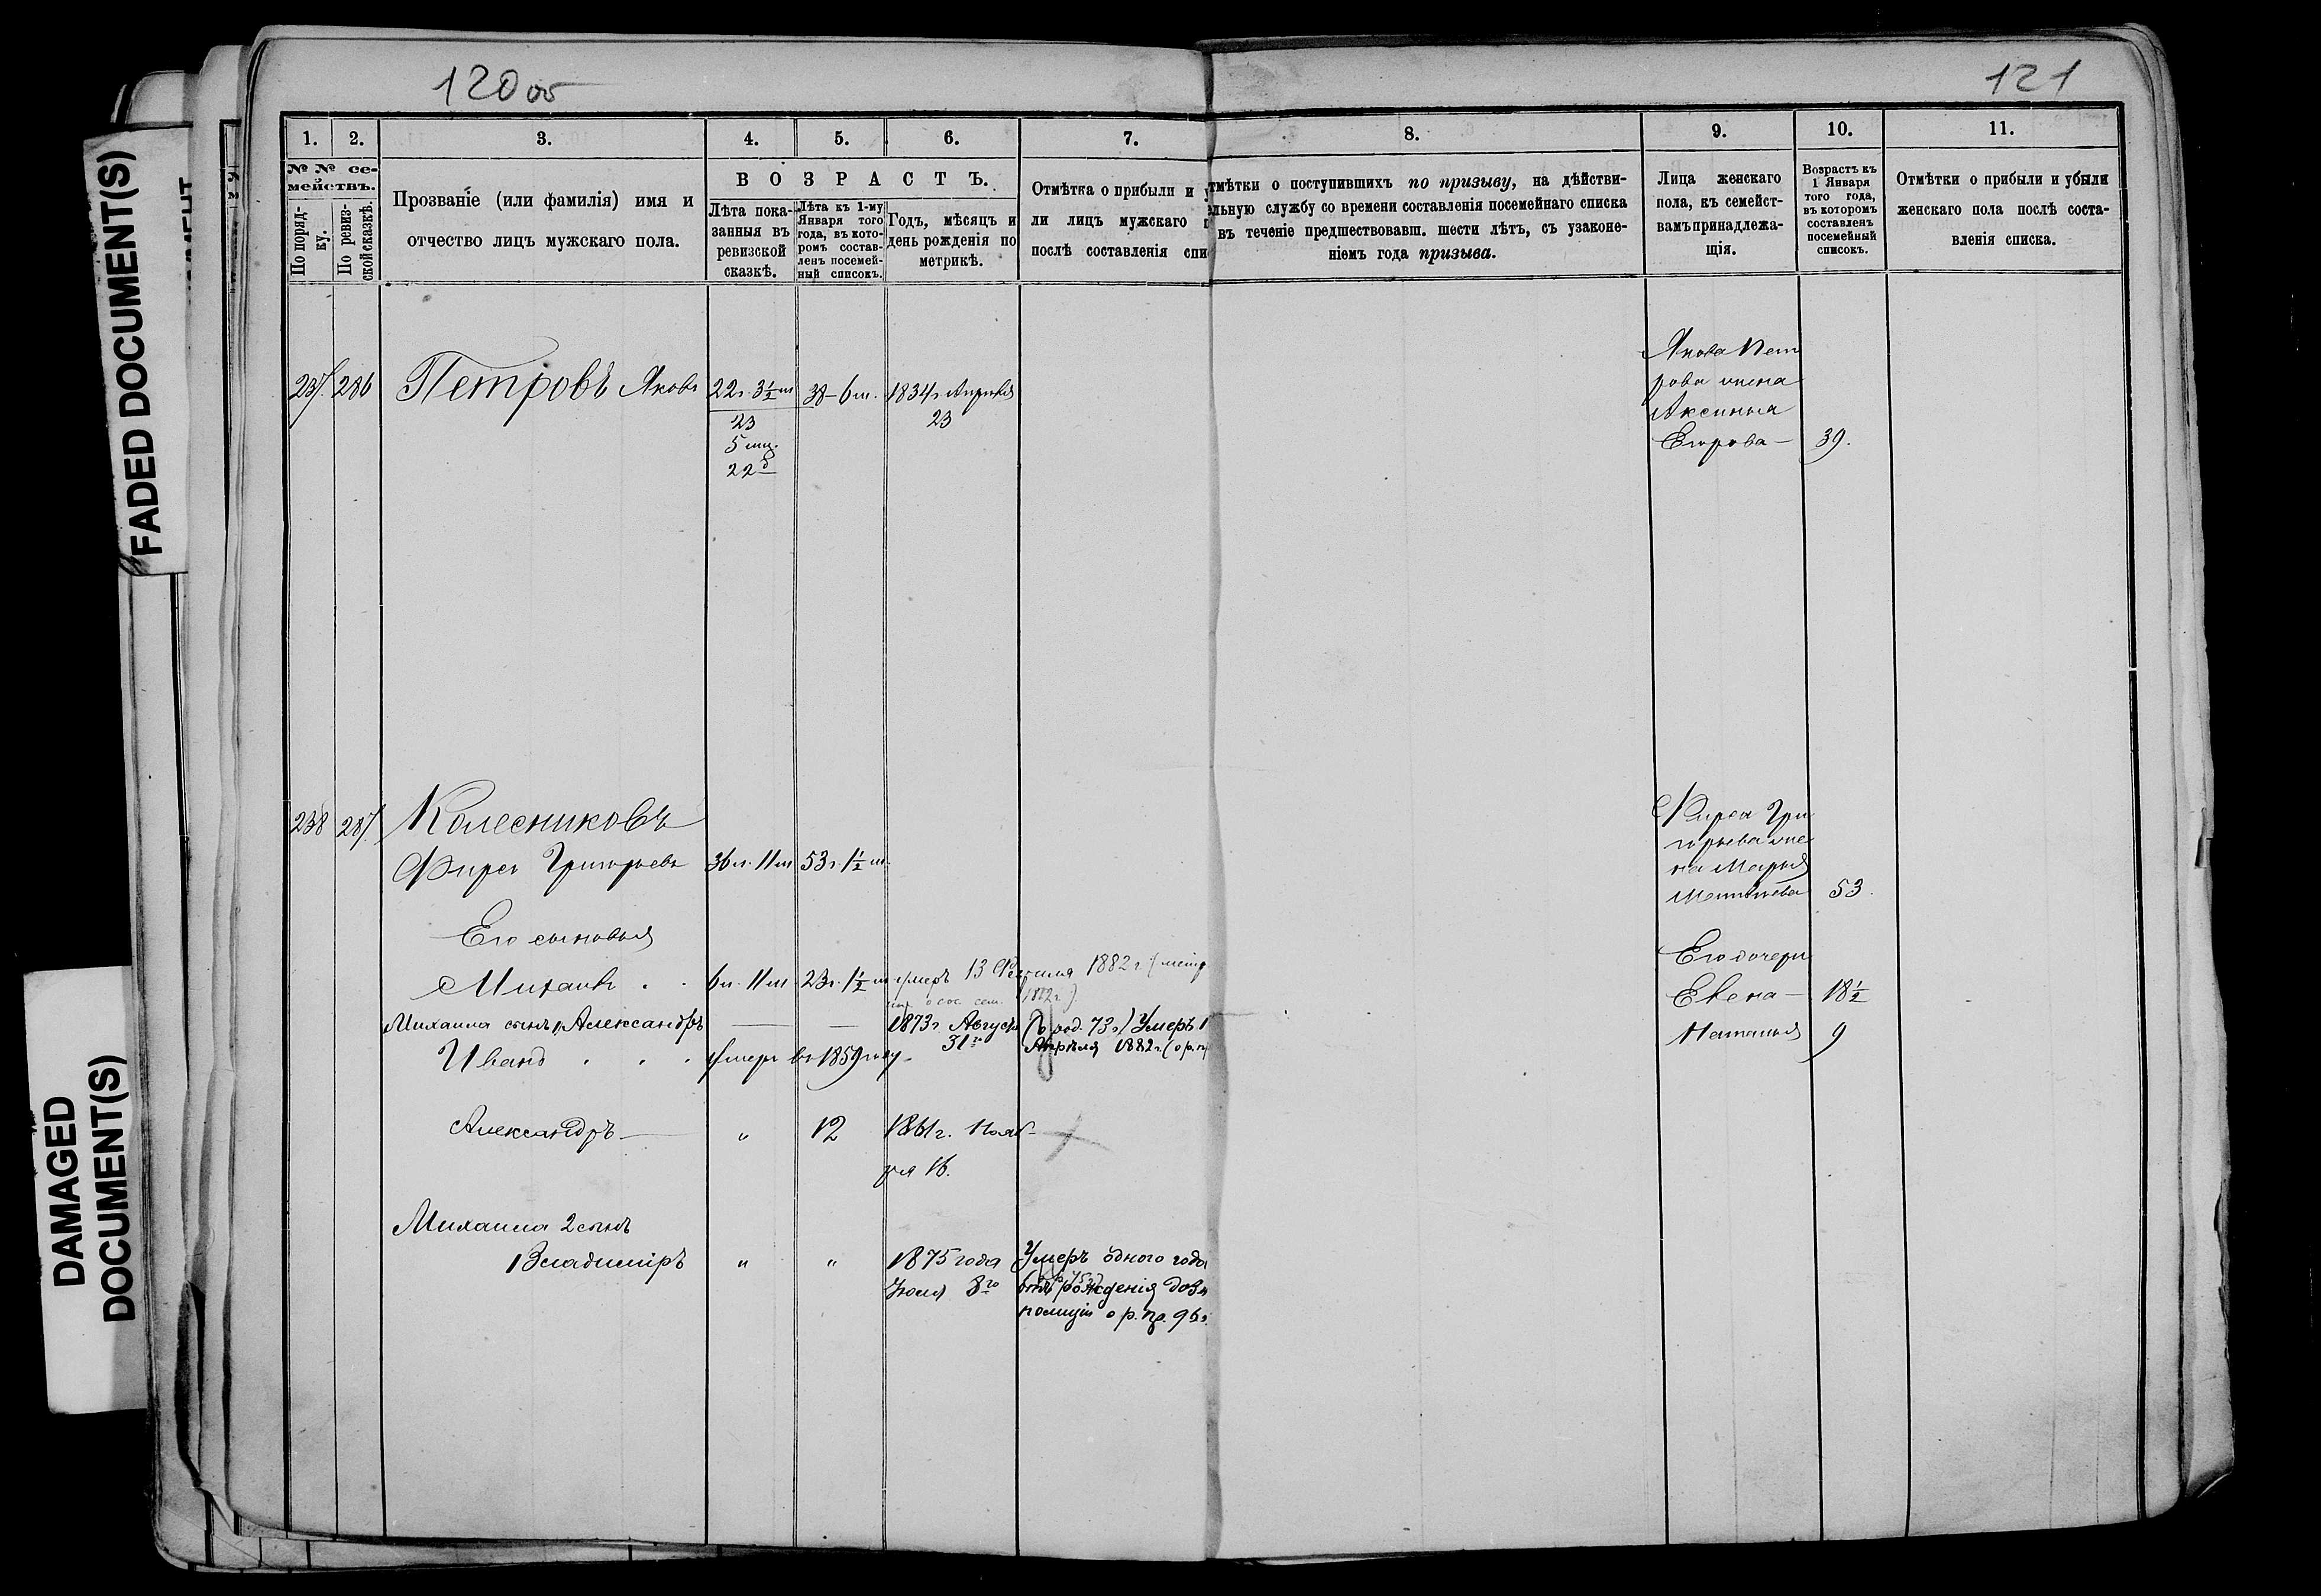 120 об
121
FADED DOCUMENT(S)
DAMAGED
DOCUMENT(S)
1.
2.
3.
4.
5.
6.
7.
8.
9.
10.
11.
№ № се-
мействъ.
По поряд-
ку.
По ревиз-
ской сказкѣ.
Прозваніе (или фамилія) имя и
отчество лицъ мужскаго пола.
ВОЗРАСТЪ.
Лѣта пока-
занныя въ
ревизской
сказкѣ.
Лѣта къ 1-му
Января того
года, въ кото-
ромъ состав-
ленъ посемей-
ный списокъ.
Годъ, мѣсяцъ и
день рожденія по
метрикѣ.
Отмѣтка о прибыли и у
ли лицъ мужскаго
послѣ составленія спи
тмѣтки о поступившихъ по призыву, на дѣйстви-
льную службу со времени составленія посемейнаго списка
въ теченіе предшествовавш. шести лѣтъ, съ узаконе-
ніемъ года призыва.
Лица женскаго
пола, къ семейст-
вамъ принадлежа-
щія.
Возрастъ къ
1 Января
того года,
въ которомъ
составленъ
посемейный
списокъ.
Отмѣтки о прибыли и убыли
женскаго пола послѣ соста-
вленія списка.
237. 286 Петровъ Яковъ 22г. 3½ м 38-6 м. 1834г Апрѣля
23
23
5 мц.
22д
Якова Пет
рова жена
Аксинья
Егорова — 39.
238 287. Колесниковъ
Фирсъ Григорьевъ 36 л. 11 м 53 г. 1½ м.
Его сыновья
Михаилъ . . 6 л. 11 м 23 г. 1½ м умеръ 13 1882 г. (метр
1882г.)
Михаила сынъ 1, Александръ — — 1873г. Август (о род. 73г.) Умеръ 1
31го Апрѣля 1882г. (о р. пр
Иванъ . . . умеръ въ 1859 году.
Александръ — " 12 1861г. Нояб-
ря 16.
Михаила 2 сынъ
Владиміръ " " 1875 года Умеръ одного года
Іюля 8го отъ рожденія дозн
полиціи о р. пр. 96г.
Фирса Гри
горьева же
на Марья
Матвѣева 53.
Его дочери
Елена — 18½
Наталья 9